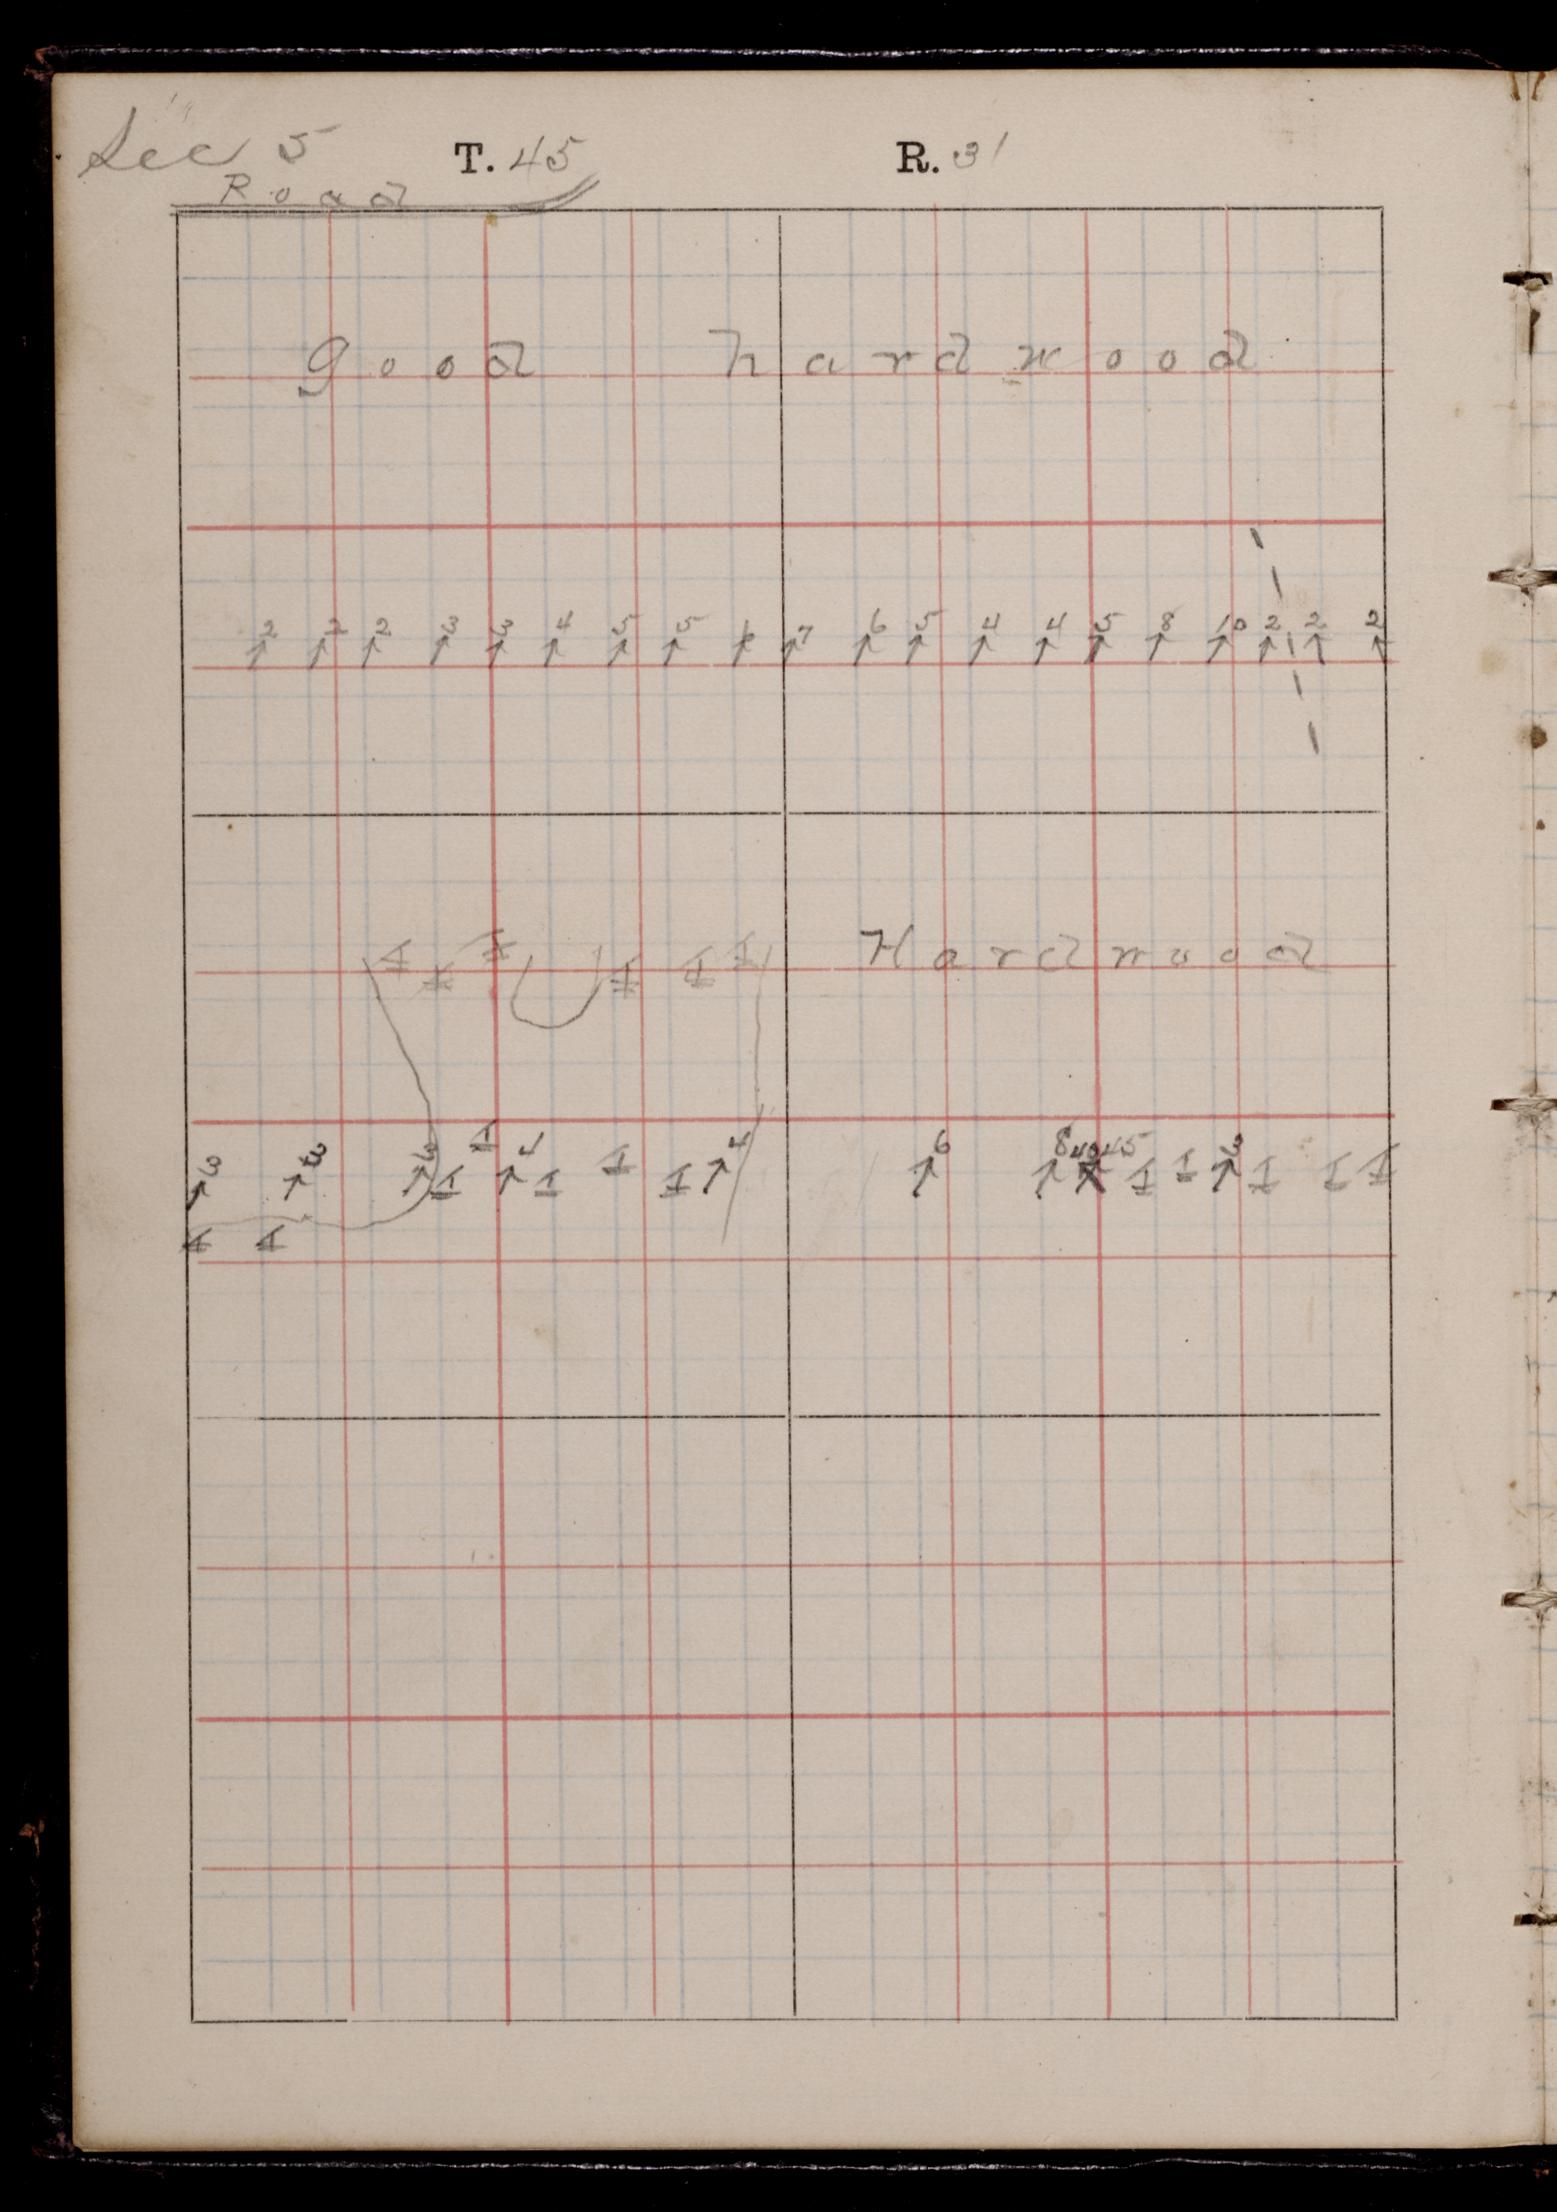 Sec 5 T. 45 R. 31
Road
good hardwood
2 2 2 3 3 4 5 5 7 6 5 4 4 5 8 10 2 2 2
Hardwood
3 3 3 4 4 6 8 45 3